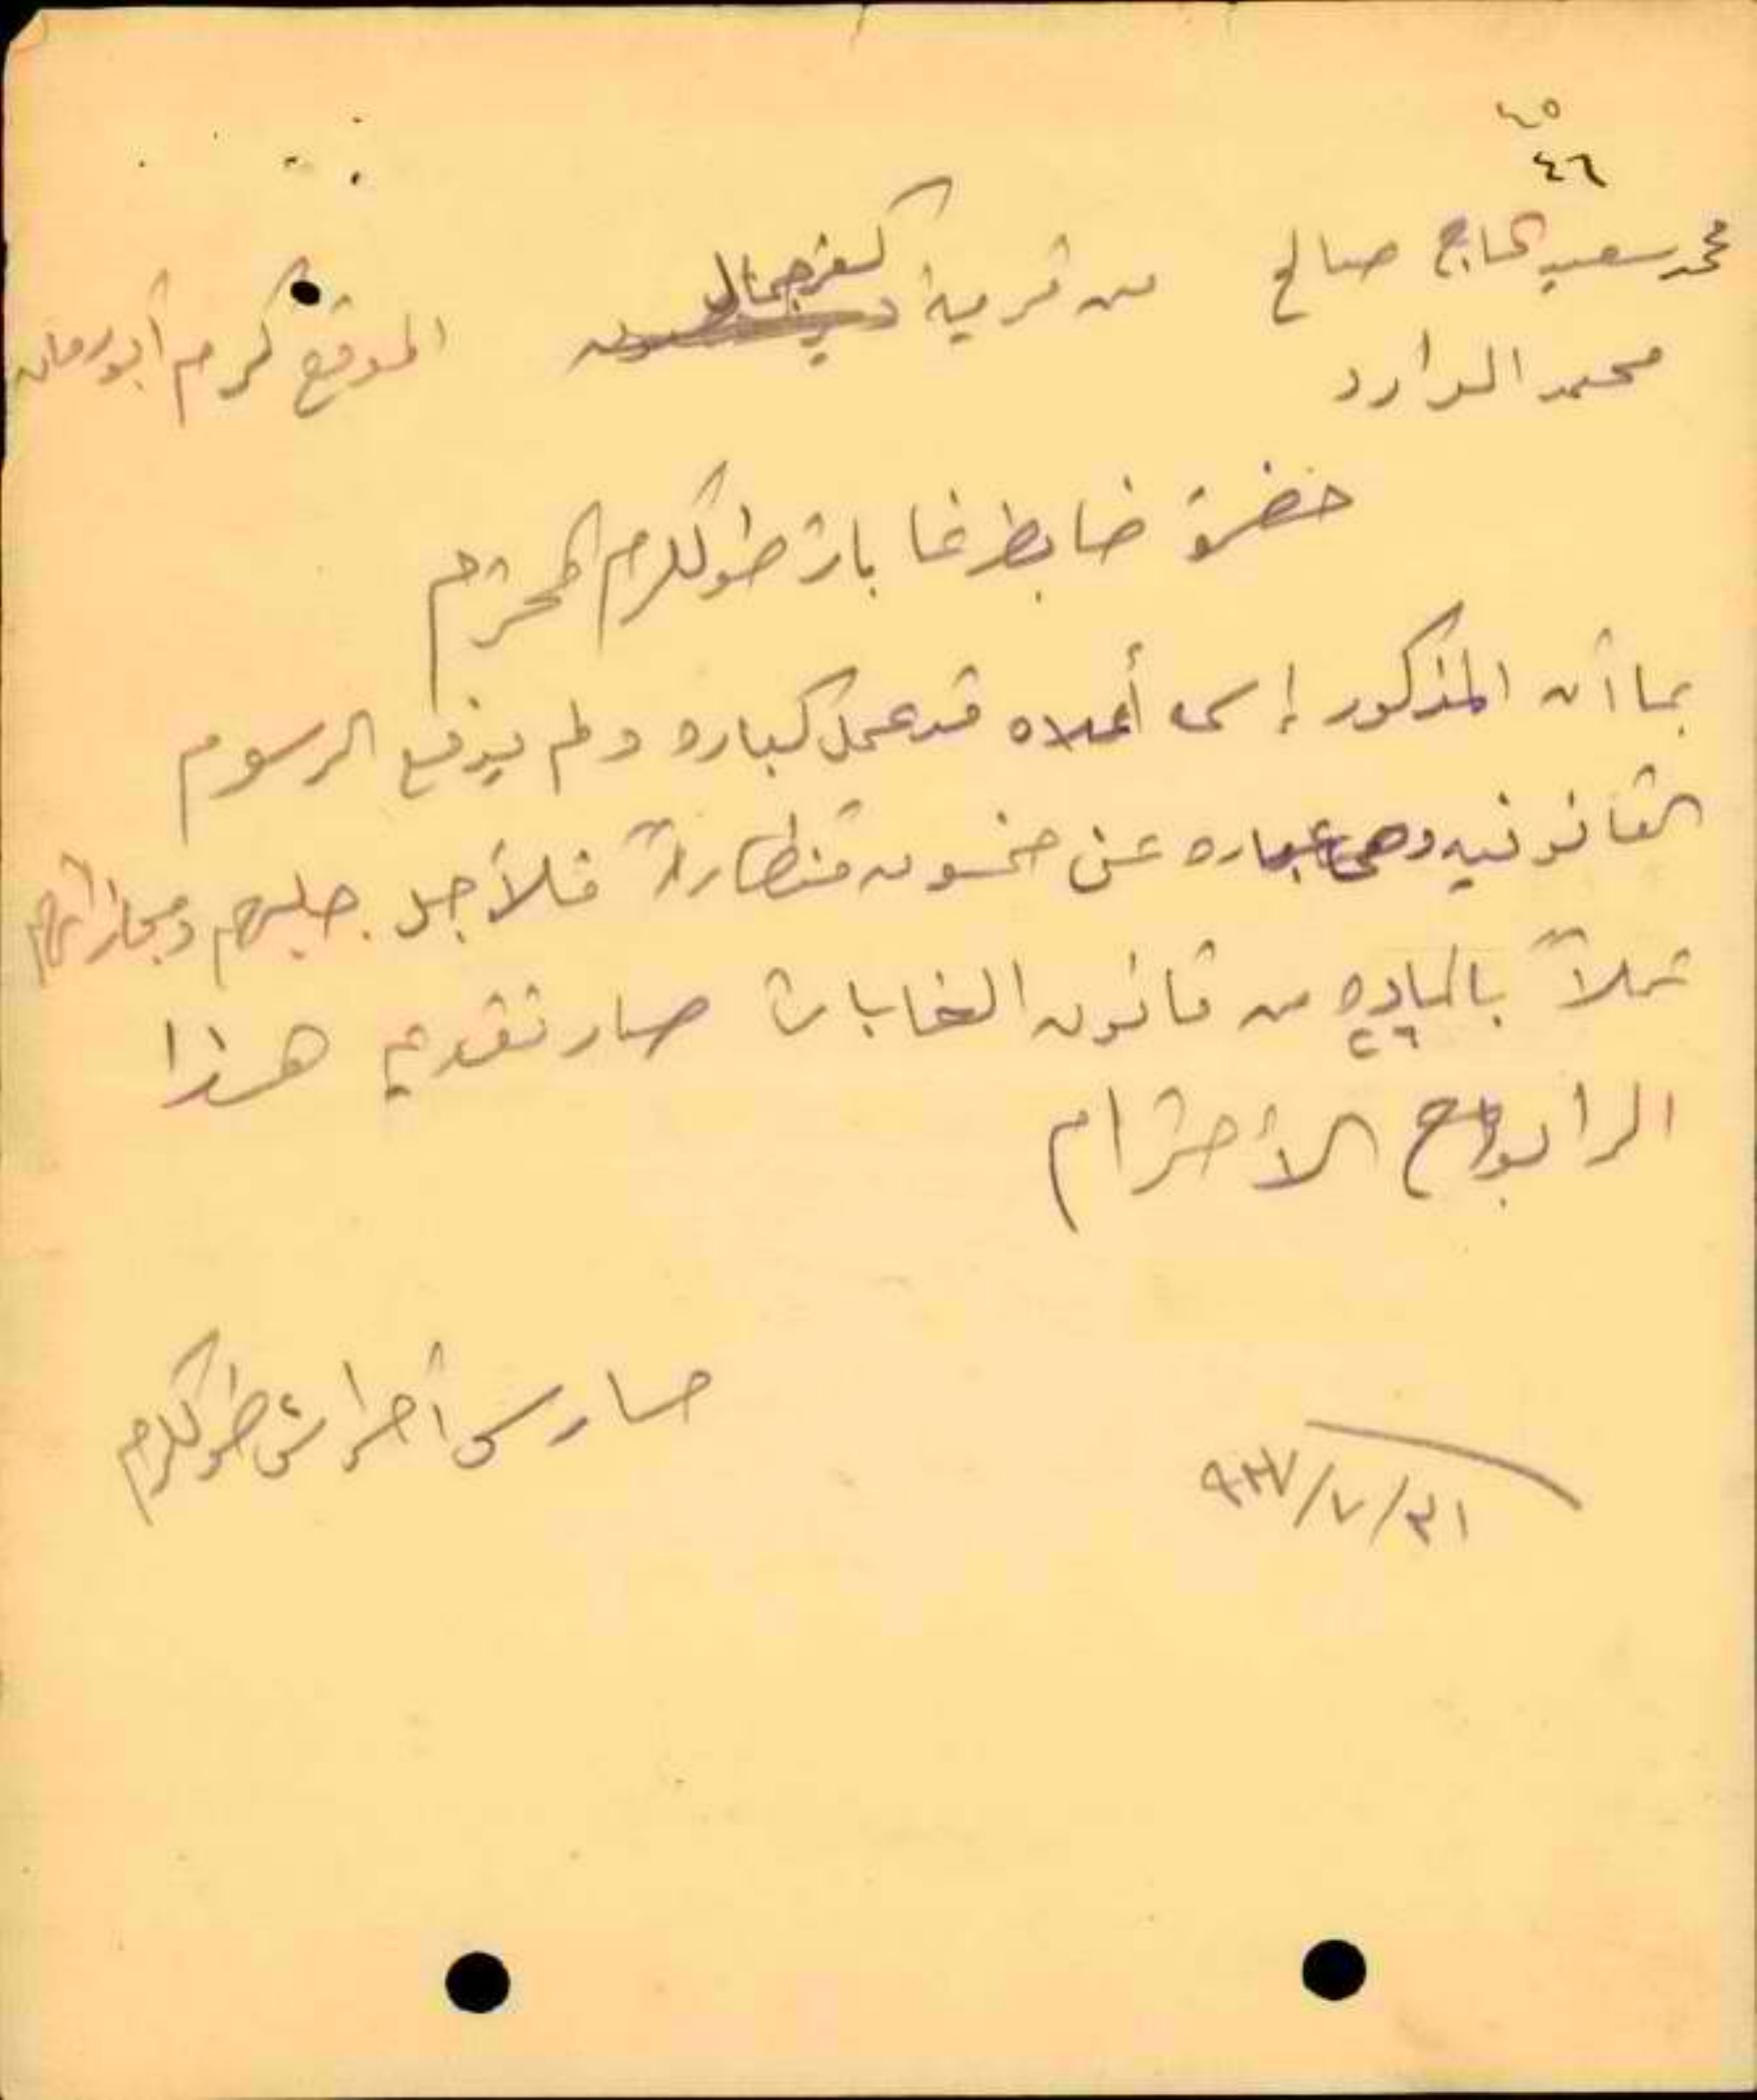 ٤٥
٤٦
محمد سعيد الحاج صالح من قرية كفرجمال الموقع كرم ابورمان
محمد الوارد
حضرة ضابط غابات طولكرم المحترم
بما أن المذكور إسمه أعلاه قد عمل كباره ولم يدفع الرسوم
القانونيه وهي عباره عن خمسون قنطاراً فلأجل جلبهم ومجازاتهم
عملاً بالماده ٢٦ من قانون الغابات صار تقديم هذا
الرابورط الأحترام
حارس أحراش طولكرم
٣١/٧/٩٢٧